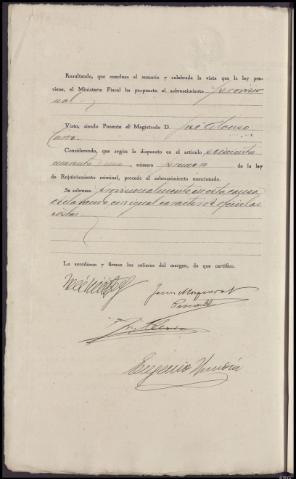 Resultando, que concluso el sumario y celebrada la vista que la ley previene, el Ministerio Fiscal ha propuesto el sobreseimiento provisional
Visto, siendo Ponente el Magistrado D. José Alonso
Considerando, que según lo dispuesto en el artículo seiscientos
cuarenta y uno, número primero de la ley
de Enjuiciamiento criminal, procede el sobreseimiento mencionado.
Se sobresee provisionalmente en esta causa,
declarando con igual carácter de oficio las
costas
Lo acordaron y firman los señores del margen, de que certifico.
Eugenio